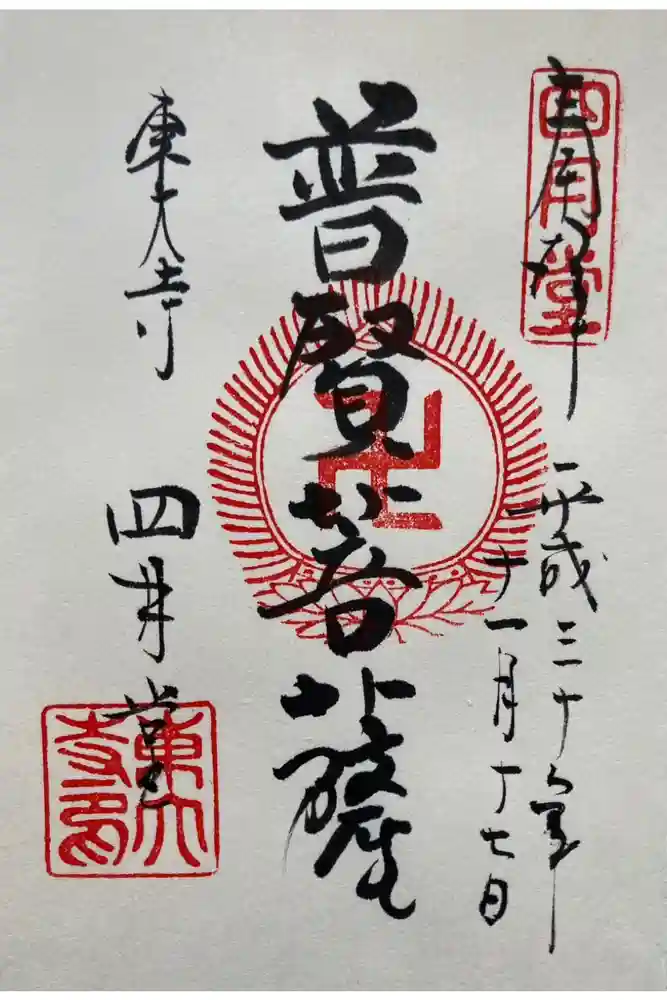 四月堂
奉拝
平成三十年
十一月十七日
普賢菩薩
卍
東大寺
四月堂
東大
寺印